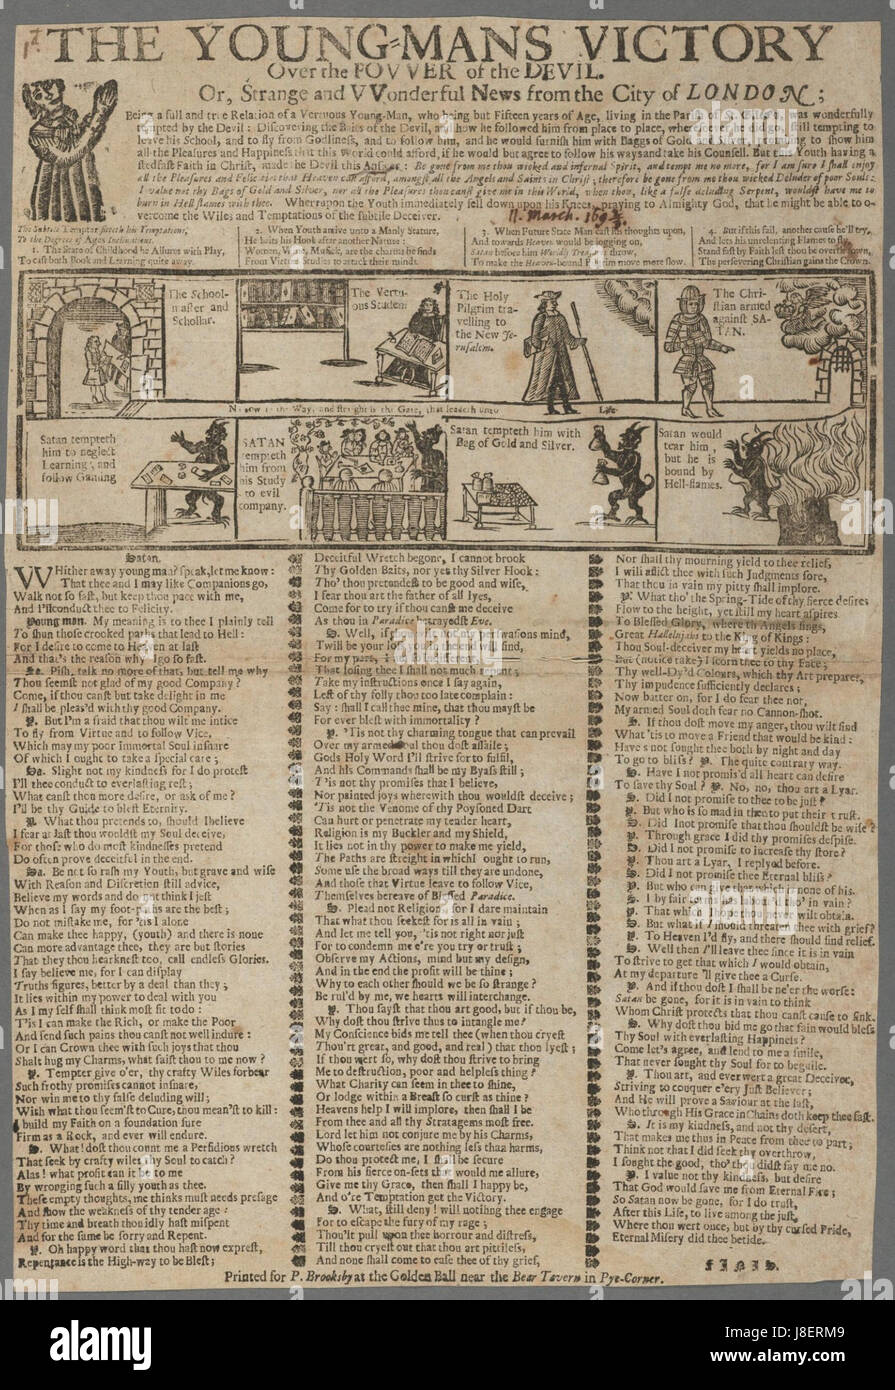 THE YOUNG-MANS VICTORY
Over the POVVER of the DEVIL.
Or, Strange and VVonderful News from the City of LONDON;
Being a full and true Relation of a Vertuous Young-Man, who being but Fifteen years of Age, living in the Parish of was wonderfully
tempted by the Devil: Discovering the Baits of the Devil, and how he followed him from place to place, wheresoever he did go, still tempting to
leave his School, and to fly from Godliness, and to follow him, and he would furnish him with Baggs of Gold and to show him
all the Pleasures and Happiness that this World could afford, if he would but agree to follow his ways and take his Counsell. But this Youth having a
stedfast Faith in Christ, made the Devil this Answer: Be gone from me thou wicked and infernal Spirit, and tempt me no more, for I am sure I shall enjoy
all the Pleasures and Felicities that Heaven can afford, amongst all the Angels and Saints in Christ; therefore be gone from me thou wicked Deluder of poor Souls:
I value not thy Bags of Gold and Silver, nor all the Pleasures thou canst give me in this World, when thou, like a false deluding Serpent, wouldst have me to
burn in Hell flames with thee. Whereupon the Youth immediately fell down upon his Knees, praying to Almighty God, that he might be able to o-
vercome the Wiles and Temptations of the subtile Deceiver.
11. March. 169
The Subtile Tempter fitteth his Temptations,
To the Degrees of Ages Inclinations.
1. The State of Childhood he Assures with Play,
To cast both Book and Learning quite away.
2. When Youth arrive unto a Manly Stature,
He baits his Hook after another Nature:
Women, Wine, Musick, are the charms he finds
From Vertues Studies to attack their minds.
3. When Future State Man call his thoughts upon,
And towards Heaven would be jogging on,
Satan before him Worldly throw,
To make the Heaven-bound Pilgrim move more slow.
4. But if this fail, another cause he'll try,
And lets his unrelenting Flames to fly,
Stand fast by Faith lest thou be overthrown,
The persevering Christian gains the Crown.
The School-
master and
Schollar.
The Vertu-
ous Student
The Holy
Pilgrim tra-
velling to
the New Je-
rusalem.
The Chri-
stian armed
against SA-
TAN.
Narrow is the Way, and straight is the Gate, that leadeth unto Life.
Satan tempteth
him to neglect
Learning, and
follow Gaming
SATAN
tempteth
him from
his Study
to evil
company.
Satan tempteth him with
Bag of Gold and Silver.
Satan would
tear him,
but he is
bound by
Hell-flames.
Satan.
WHither away young man? speak, let me know:
That thee and I may like Companions go,
Walk not so fast, but keep thou pace with me,
And I'll conduct thee to Felicity.
Young man. My meaning is to thee I plainly tell
To shun those crooked paths that lead to Hell:
For I desire to come to Heaven at last
And that's the reason why I go so fast.
Sa. Pish, talk no more of that, but tell me why
Thou seemst not glad of my good Company?
Come, if thou canst but take delight in me
I shall be pleas'd with thy good Company.
Y. But I'm afraid that thou wilt me intice
To fly from Virtue and to follow Vice,
Which may my poor Immortal Soul insnare
Of which I ought to take a special care;
Sa. Slight not my kindness for I do protest
I'll thee conduct to everlasting rest;
What canst thou more desire, or ask of me?
I'll be thy Guide to blest Eternity.
Y. What thou pretends to, should I believe
I fear at last thou wouldst my Soul deceive,
For those who do most kindnesses pretend
Do often prove deceitful in the end.
Sa. Be not so rash my Youth, but grave and wise
With Reason and Discretion still advice,
Believe my words and do not think I jest
When as I say my foot-paths are the best;
Do not mistake me, for 'tis I alone
Can make thee happy, (youth) and there is none
Can more advantage thee, they are but stories
That they thou hearknest too, call endless Glories.
I say believe me, for I can display
Truths figures, better by a deal than they;
It lies within my power to deal with you
As I my self shall think most fit to do:
T'is I can make the Rich, or make the Poor
And send such pains thou canst not well indure:
Or I can Crown thee with such joys that thou
Shalt hug my Charms, what saist thou to me now?
Y. Tempter give o'er, thy crafty Wiles forbear
Such frothy promises cannot insnare,
Nor win me to thy false deluding will;
With what thou seem'st to Cure, thou mean'st to kill:
I build my Faith on a foundation sure
Firm as a Rock, and ever will endure.
S. What! dost thou count me a Perfidious wretch
That seek by crafty wiles thy Soul to catch?
Alas! what profit can it be to me
By wronging such a silly youth as thee.
These empty thoughts, me thinks must needs presage
And show the weakness of thy tender age:
Thy time and breath thou idly hast mispent
And for the same be sorry and Repent.
Y. Oh happy word that thou hast now exprest,
Repentance is the High-way to be Blest;
Deceitful Wretch begone, I cannot brook
Thy Golden Baits, nor yet thy Silver Hook:
Tho' thou pretendest to be good and wise,
I fear thou art the father of all lyes,
Come for to try if thou canst me deceive
As thou in Paradice betrayedst Eve.
S. Well, if mind,
Twill be your loss you in the end will find,
For my part,
That losing thee I shall not much repent;
Take my instructions once I say again,
Lest of thy folly thou too late complain:
Say: shall I call thee mine, that thou mayst be
For ever blest with immortality?
Y. 'Tis not thy charming tongue that can prevail
Over my armed Soul thou dost assaile;
Gods Holy Word I'll strive for to fulfil,
And his Commands shall be my Byass still;
T'is not thy promises that I believe,
Nor painted joys wherewith thou wouldst deceive;
'Tis not the Venome of thy Poysoned Dart
Can hurt or penetrate my tender heart,
Religion is my Buckler and my Shield,
It lies not in thy power to make me yield,
The Paths are streight in which I ought to run,
Some use the broad ways till they are undone,
And those that Virtue leave to follow Vice,
Themselves bereave of Blessed Paradice.
S. Plead not Religion, for I dare maintain
That what thou seekest for is all in vain;
And let me tell you, 'tis not right nor just
For to condemn me e're you try or trust;
Observe my Actions, mind but my design,
And in the end the profit will be thine;
Why to each other should we be so strange?
Be rul'd by me, we hearts will interchange.
Y. Thou sayst that thou art good, but if thou be,
Why dost thou strive thus to intangle me?
My Conscience bids me tell thee (when thou cryest
Thou'rt great, and good, and real) that thou lyest;
If thou wert so, why dost thou strive to bring
Me to destruction, poor and helpless thing?
What Charity can seem in thee to shine,
Or lodge within a Breast so curst as thine?
Heavens help I will implore, then shall I be
From thee and all thy Stratagems most free.
Lord let him not conjure me by his Charms,
Whose courtesies are nothing less than harms,
Do thou protect me, I shall be secure
From his fierce on-sets that would me allure,
Give me thy Grace, then shall I happy be,
And o're Temptation get the Victory.
S. What, still deny! will nothing thee engage
For to escape the fury of my rage;
Thou'lt pull upon thee horrour and distress,
Till thou cryest out that thou art pittiless,
And none shall come to ease thee of thy grief,
Nor shall thy mourning yield to thee relief,
I will afflict thee with such Judgments sore,
That thou in vain my pitty shall implore.
Y. What tho' the Spring-Tide of thy fierce desires
Flow to the height, yet still my heart aspires
To Blessed Glory, where th Angels sings,
Great Hallelujahs to the King of Kings:
Thou Soul-deceiver my heart yields no place,
But (notice take) I scorn thee to thy Face;
Thy well-Dy'd Colours, which thy Art prepares,
Thy impudence sufficiently declares;
Now batter on, for I do fear thee not,
My armed Soul doth fear no Cannon-shot.
S. If thou dost move my anger, thou wilt find
What 'tis to move a Friend that would be kind:
Have I not sought thee both by night and day
To go to bliss? Y. The quite contrary way.
S. Have I not promis'd all heart can desire
To save thy Soul? Y. No, no, thou art a Lyar.
S. Did I not promise to thee to be just?
Y. But who is so mad in thee to put their trust.
S. Did I not promise that thou shouldst be wise?
Y. Through grace I did thy promises despise.
S. Did I not promise to increase thy store?
Y. Thou art a Lyar, I replyed before.
S. Did I not promise thee Eternal bliss?
Y. But who can give that which is none of his.
S. I by fair terms in vain?
Y. That which I hope thou never wilt obtain.
S. But what if I should threaten thee with grief?
Y. To Heaven I'd fly, and there should find relief.
S. Well then I'll leave thee since it is in vain
To strive to get that which I would obtain,
At my departure 'll give thee a Curse.
Y. And if thou dost I shall be ne'er the worse:
Satan be gone, for it is in vain to think
Whom Christ protects that thou canst cause to sink.
S. Why dost thou bid me go that fain would bless
Thy Soul with everlasting Happiness?
Come let's agree, and lend to me a smile,
That never sought thy Soul for to beguile.
Y. Thou art, and ever wert a great Deceiver,
Striving to couquer e'ery Just Believer;
And He will prove a Saviour at the last,
Who through His Grace in Chains doth keep thee fast.
S. It is my kindness, and not thy desert,
That makes me thus in Peace from thee to part;
Think not that I did seek thy overthrow,
I sought the good, tho' thou didst say me no.
Y. I value not thy kindness, but desire
That God would save me from Eternal Fire;
So Satan now be gone, for I do trust,
After this Life, to live among the just,
Where thou wert once, but by thy cursed Pride,
Eternal Misery did thee betide.
FINIS.
Printed for P. Brooksby at the Golden Ball near the Bear Tavern in Pye-Corner.
alamy stock photo
J8ERM9
www.alamy.com